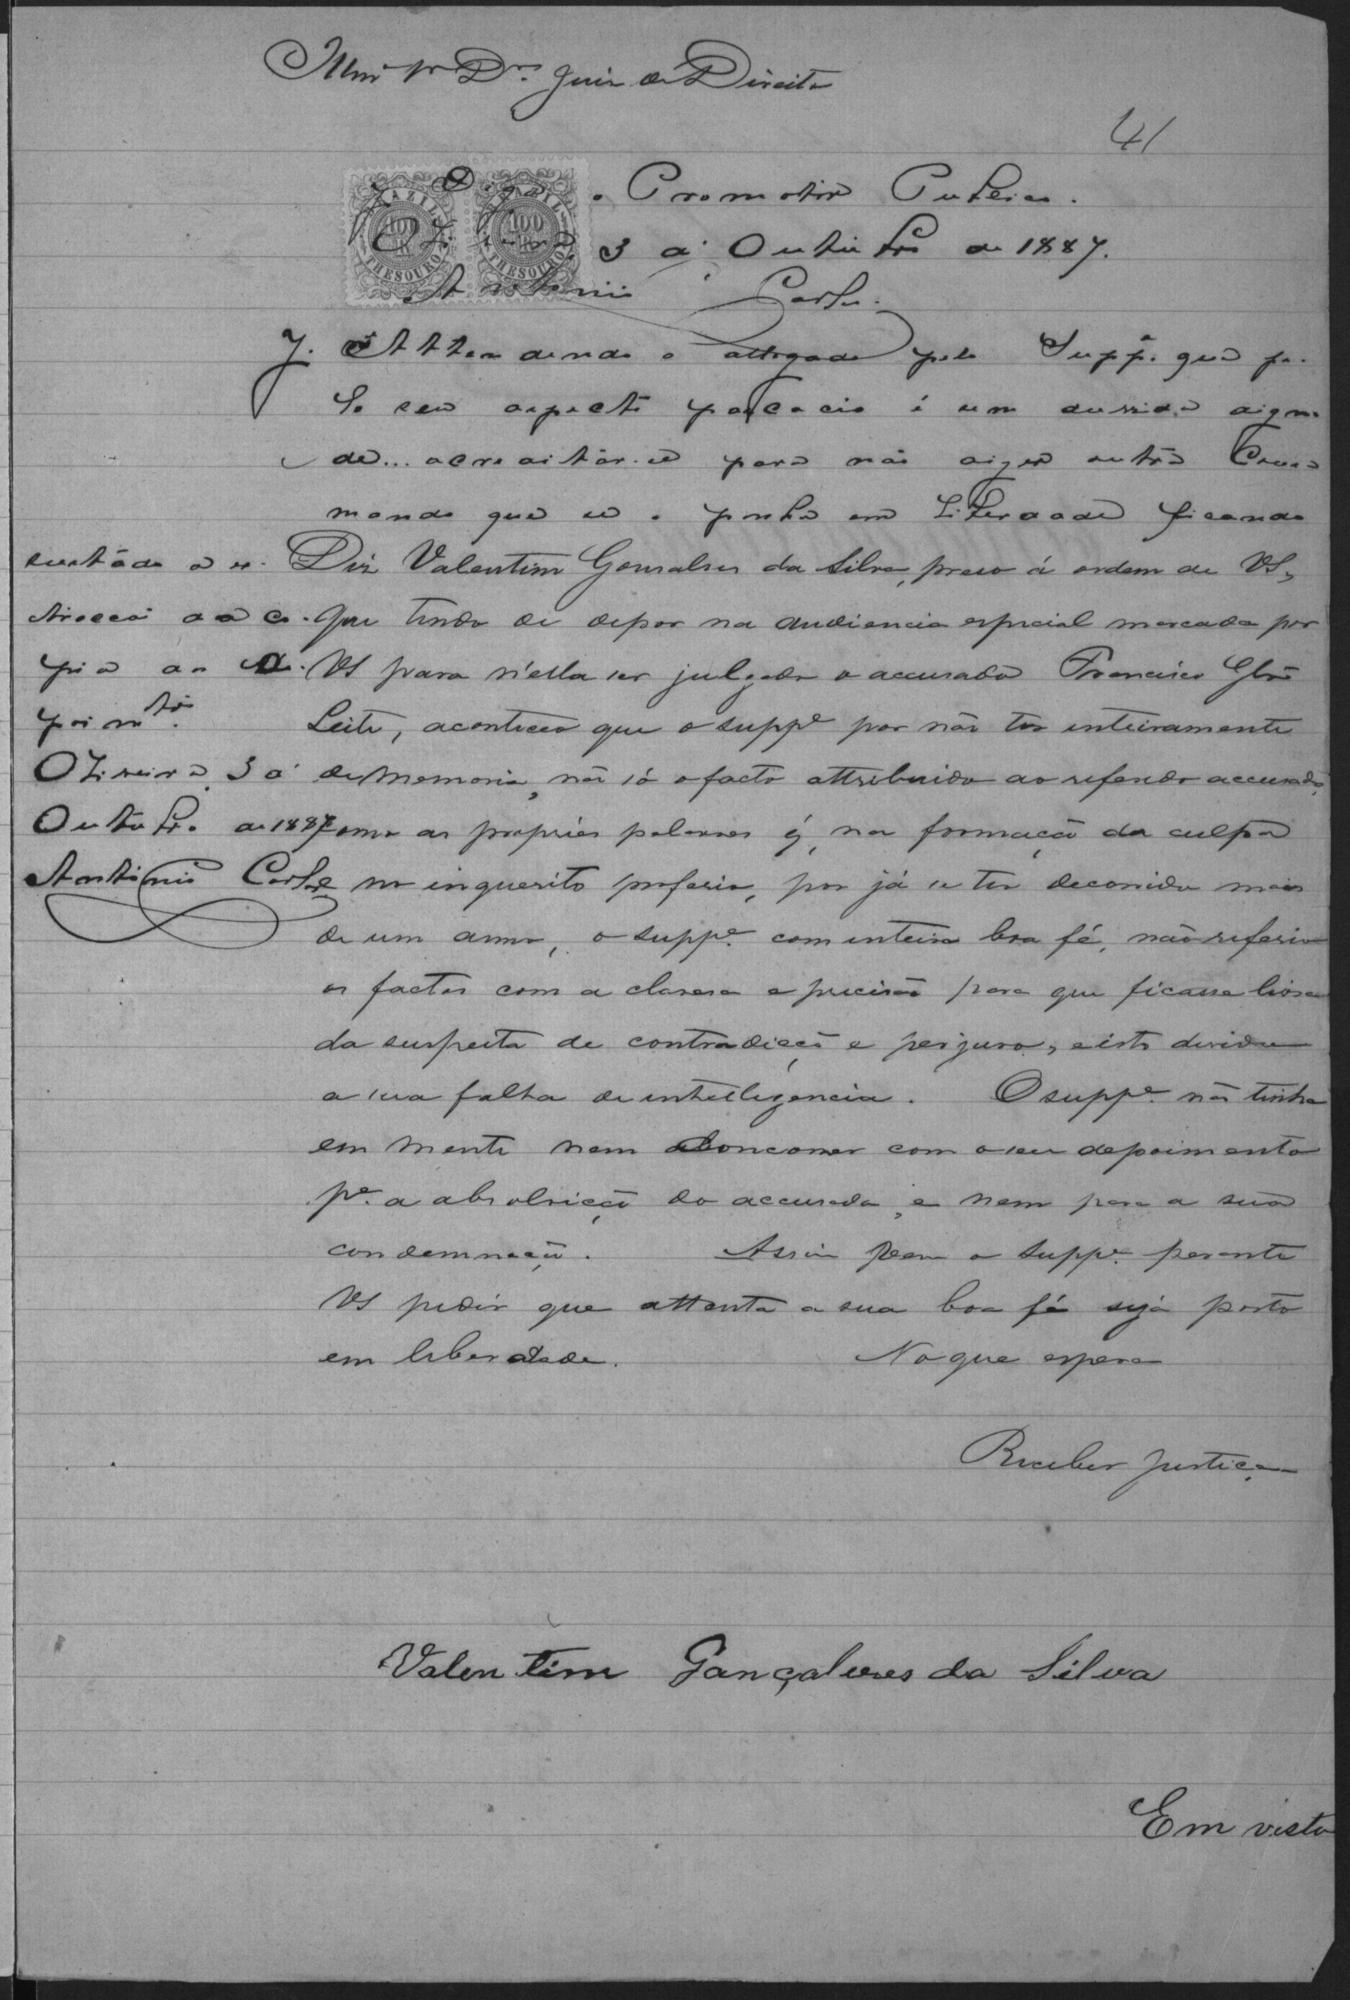 Illmo Sr Dr. Juiz de Direito
41
Diga o Promotor Publico.
3 de Outubro de 1887.
Antonio Carlos.
J. Attendendo o allegado pelo Supp.e que pe-
lo seu aspecto parece
de... acreditar-se para não dizer outra cousa
mando que se o ponha em liberdade ficando
Diz Valentim Gonsalves da Silva, preso á ordem de VS,
que tendo de depor na audiencia especial marcada por
VS para n'ella ser julgado o accusado Francisco Glz
Leite, aconteceo que o suppe por não ter inteiramente
de memoria, não só o facto attribuido ao referido accusado,
como as proprias palavras q, na formação da culpa
e no inquerito proferio, por já se ter decorrido mais
de um anno, o suppe. com inteira boa fé, não referio
os factos com a claresa e precisão para que ficasse livre
da suspeita de contradicção e perjuro, e isto devido
a sua falta de intelligencia. O suppe. não tinha
em mente nem concorrer com o seu depoimento
pa. a absolvicção do accusado, e nem para a sua
condemnação. Assim vem o suppe. perante
VS pedir que attenta a sua boa fé seja posto
em liberdade. No que espera
Receber justiça
sustado a ex-
tracção da co-
pia do de-
poimto.
Oliveira, 3 de
Outubro de 1887
Antonio Carlos
Valentim Gançalves da Silva
Em vista